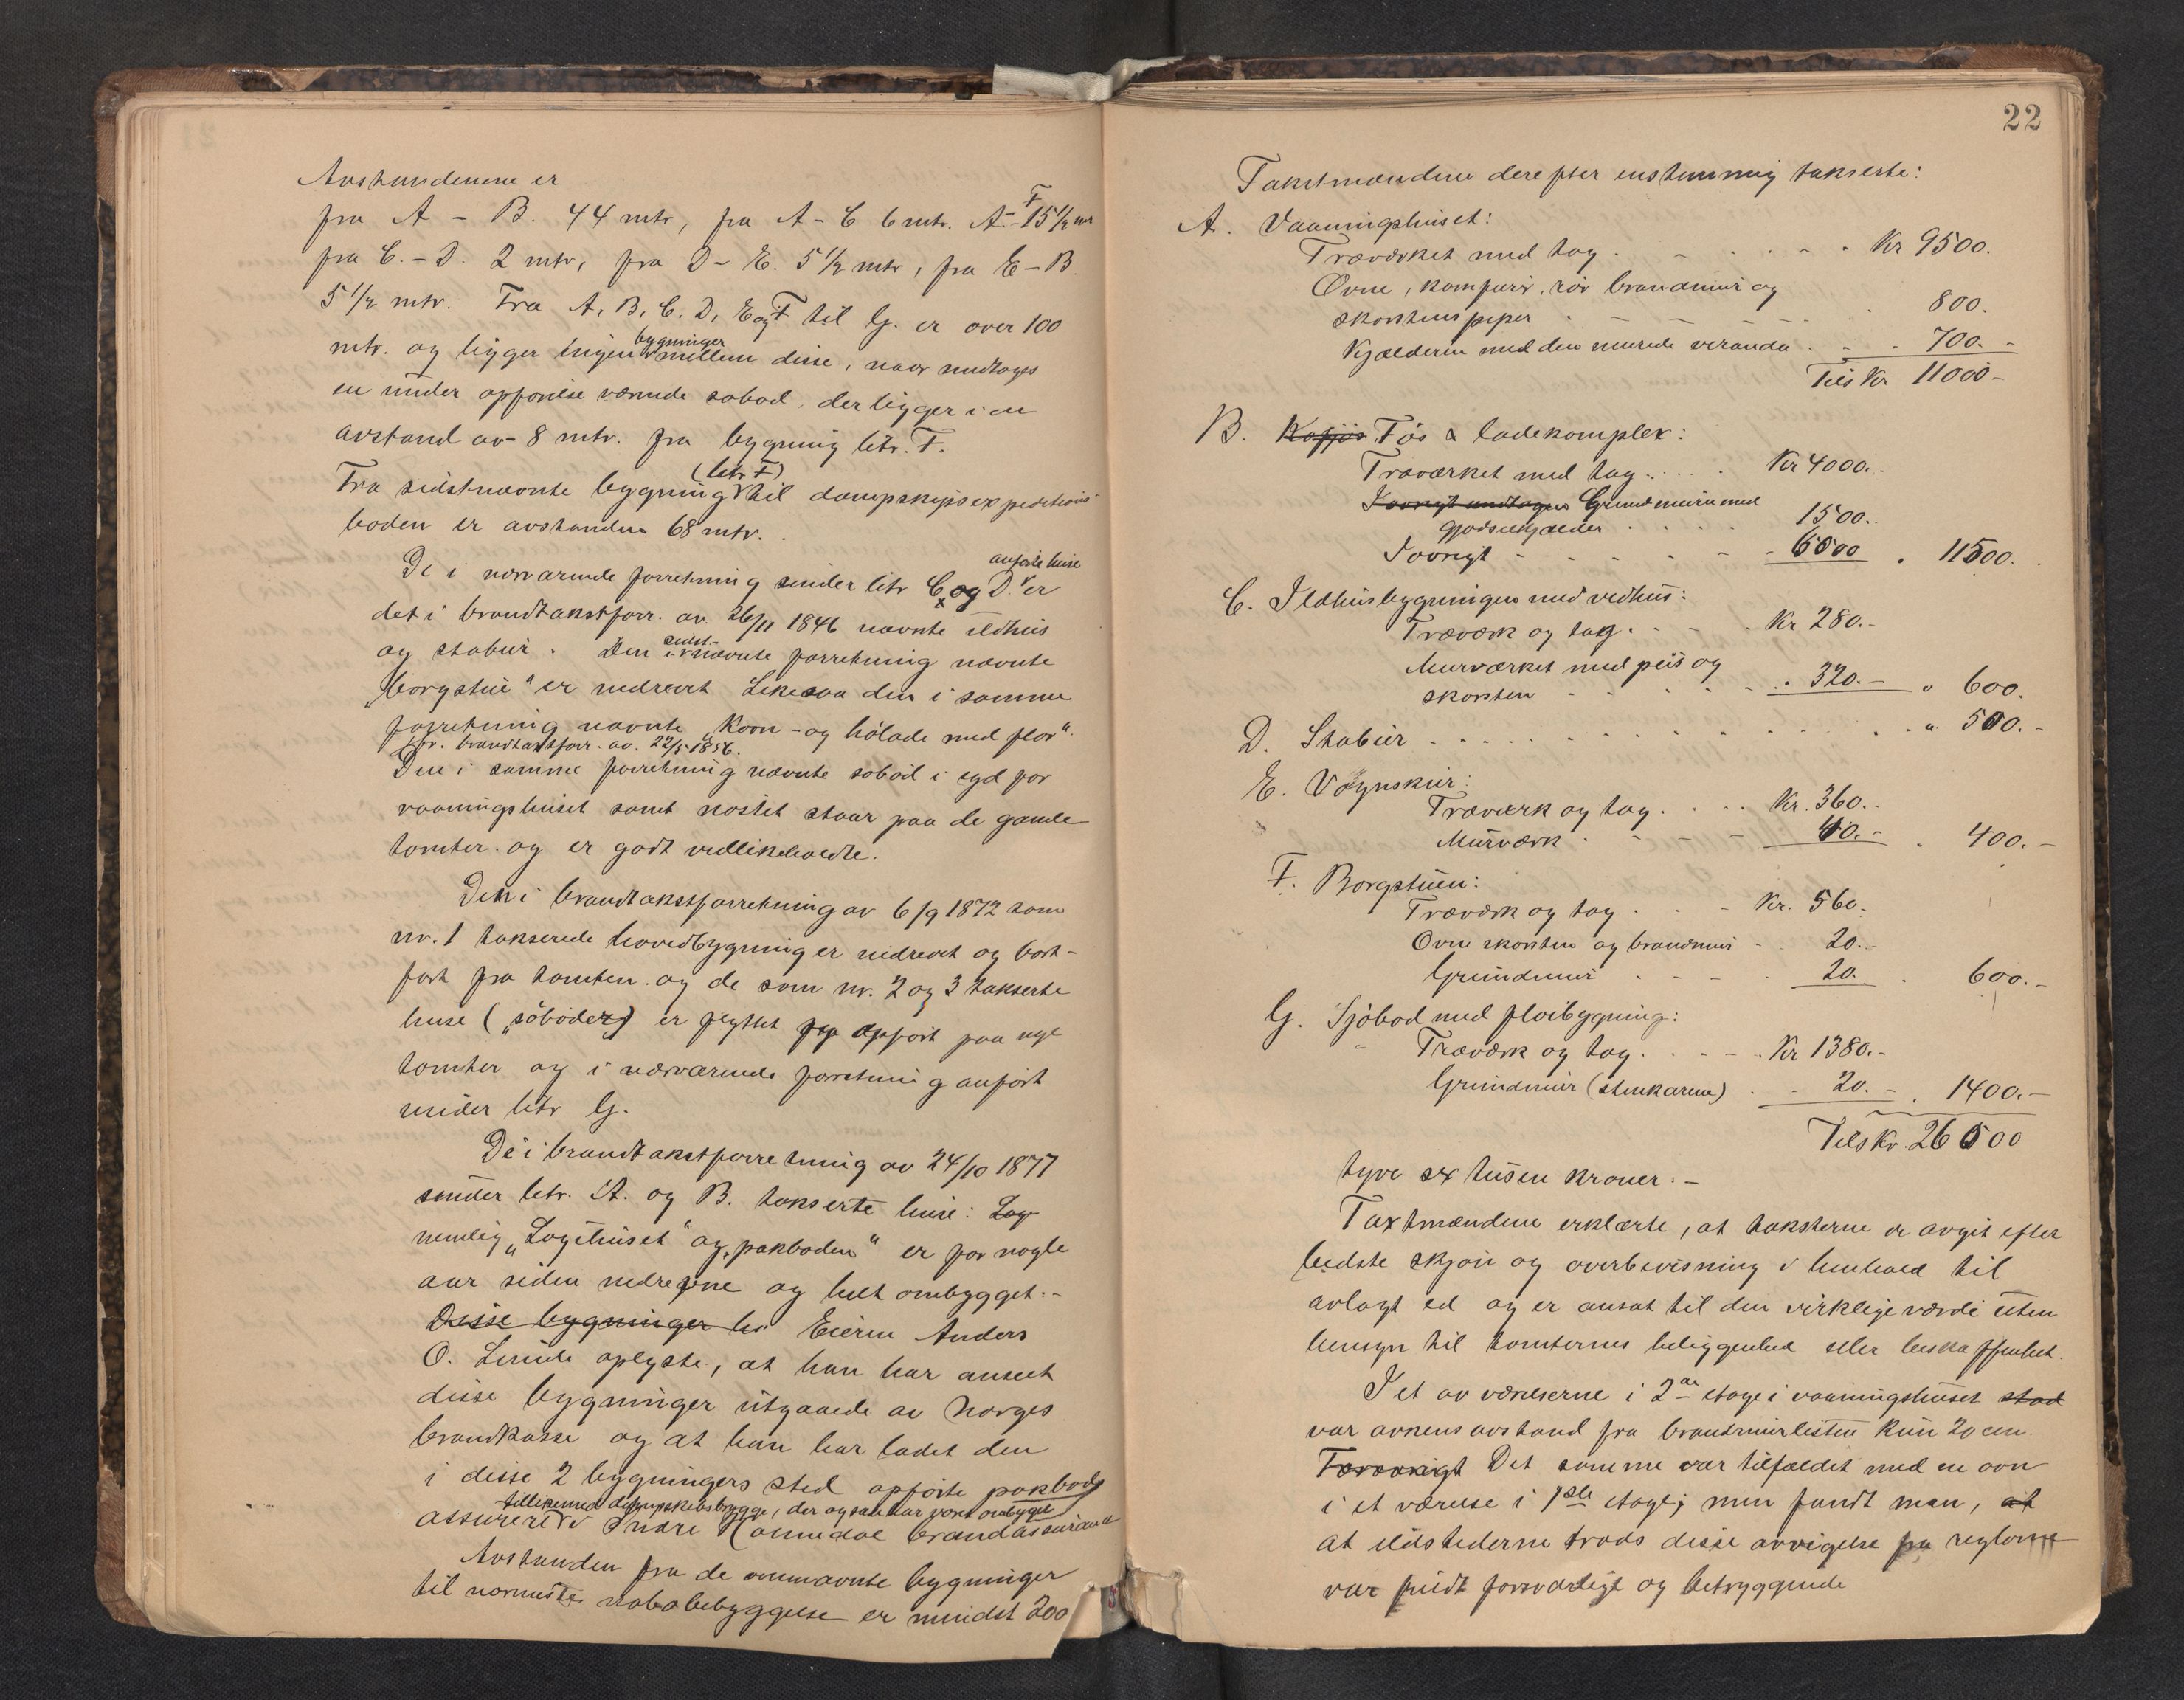 Avstandenene er
fra A – B. 44 mtr, fra A – C 6 mtr. A – F 15 1/2 mtr
fra C. – D. 2 mtr, fra D – E. 5 1/2 mtr, fra E – B
5 1/2 mtr. Fra A, B, C, D, E og F til G. er over 100
mtr. og ligger ingen bygninger mellem disse, naar undtages
en under opførelse værende søbod, der ligger i en
avstand av 8 mtr. fra bygning litr. F.
Fra sidstnævnte bygning (litr F) til dampskipsexpeditions-
boden er avstanden 68 mtr.
De i nærværende forretning under litr C og D anførte huse er
det i brandtakstforr. av 26/11 1846 nævnte ildhus
og stabur. Den i sidst- nævnte forretning nævnte
„borgstue" er nedrevet Likesaa den i samme
forretning nævnte „Korn- og hølade med flor".
fr. brandtakstforr. av. 22/5 1856.
Den i samme forretning nævnte søbod i syd for
vaaningshuset samt nøstet staar paa de gamle
tomter og er godt vedlikeholdte.
Den i brandtakstforretning av 6/9 1872 som
nr. 1 takserede hovedbygning er nedrevet og bort-
ført fra tomten og de som nr. 2 og 3 takserte
huse („søboder") er flyttet og opført paa nye
tomter og i nærværende forretning anført
under litr G.
De i brandtakstforretning av 24/10 1877
under litr. A. og B. takserte huse: Log
nemlig „Logihuset" og „pakboden" er for nogle
aar siden nedrevne og helt ombygget. –
Disse bygninger he Eieren Anders
O. Lunde oplyste, at han har anseet
disse bygninger utgaaede av Norges
brandkasse og at han har ladet den
i disse 2 bygningers sted opførte pakbod,
tillikemed dampskibsbrygge, der ogsaa har været ombygget
assurert i Indre Romsdal brandassurance
Avstanden fra de ovennævnte bygninger
til nærmeste nabobebyggelse er mindst 200
22
Takstmændene derefter enstemmig takserte:
A. Vaaningshuset:
Træverket med tag . – . – . Kr 9500.
Ovne, komfurer, rør brandmur og
skorstenspiper . – – – . 800.
Kjælderen med den murede veranda . – . 700. –
Tils Kr 11000 –
B. Kafjøs Føs & ladekomplex:
Træverket med tag . . . . Kr 4000. –
Iøvrigt undtagen Grundmuren med
gjødselkjælder . . . . 1500. –
Iøvrigt – – – – – 6000 . 11500.
C. Ildhusbygningen med vedhus:
Træverk og tag . – . Kr 280. –
Murverket med peis og
skorsten – – – – . 320. – " 600.
D. Stabur . . . . . . . . . . " 500. –
E. Vognskur:
Træverk og tag . . . . Kr. 360. –
Murverk . – – – 40. – . 400. –
F. Borgstuen:
Træverk og tag . – – Kr. 560. –
Ovne skorsten og brandmur – 20. –
Grundmur . – – – . 20. . 600. –
G. Sjøbod med fløibygning:
Træverk og tag . . – – . Kr 1380. –
Grundmur (stenkarene) . – 20. – . 1400. –
Tils Kr. 26000
tyve sex tusen kroner. –
Taxtmændene erklærte, at taksterne er avgit efter
bedste skjøn og overbevisning i henhold til
avlagt ed og er ansat til den virkelige værdi uten
hensyn til tomternes beliggenhed eller beskaffenhet.
I et av værelserne i 2den etage i vaaningshuset stod
var ovnens avstand fra brandmurlisten kun 20 cm.
Forøvrigt Det samme var tilfældet med en ovn
i et værelse i 1ste etage; men fandt man, at
at ildstederne trods disse avvigelse fra reglerne
var fuldt forsvarligt og betryggende